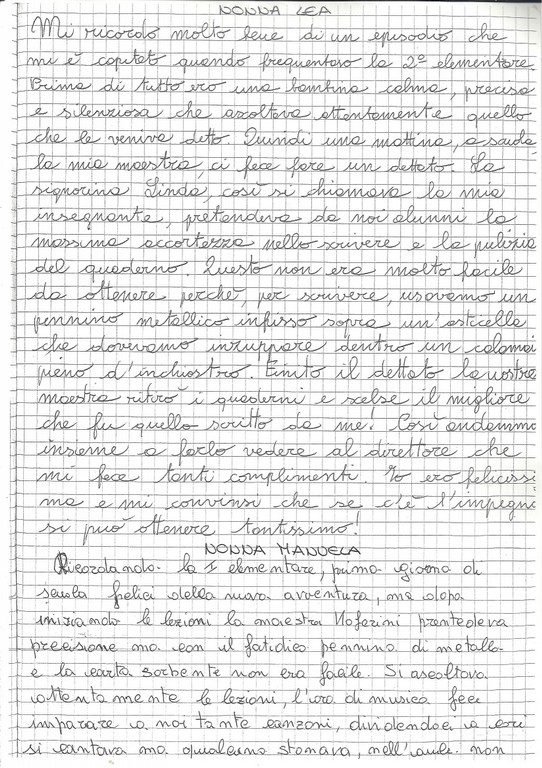 NONNA LEA
Mi ricordo molto bene di un episodio che
mi è capitato quando frequentavo la 2ª elementare.
Prima di tutto ero una bambina calma, precisa
e silenziosa che ascoltava attentamente quello
che le veniva detto. Quindi una mattina, a scuola
la mia maestra, ci fece fare un dettato. La
signorina Linda, così si chiamava la mia
insegnante, pretendeva da noi alunni la
massima accortezza nello scrivere e la pulizia
del quaderno. Questo non era molto facile
da ottenere perché, per scrivere, usavamo un
pennino metallico infisso sopra un'asticella
che dovevamo inzuppare dentro un calamai
pieno d'inchiostro. Finito il dettato la nostra
maestra ritirò i quaderni e scelse il migliore
che fu quello scritto da me! Così andammo
insieme a farlo vedere al direttore che
mi fece tanti complimenti. Io ero felicissi
ma e mi convinsi che se c'è l'impegno
si può ottenere tantissimo!
NONNA MANUELA
Ricordando la I elementare, primo giorno di
scuola felici della nuova avventura, ma dopo
iniziando le lezioni la maestra prentedeva
precisione ma con il fatidico pennino di metallo
e la carta sorbente non era facile. Si ascoltava
attentamente le lezioni, l'ora di musica fece
imparare a noi tante canzoni, dividendoci a cori
si cantava ma qualcuno stonava, nell'aula non